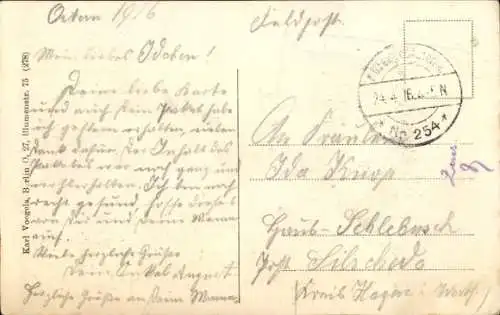 Ostern 1916
Mein liebes Idchen!
Deine liebe Karte
und auch Dein Paket habe
ich gestern erhalten, vielen
Dank dafür. Der Inhalt des
Paketes war noch ganz und
wohlerhalten. Ich bin noch
recht gesund, hoffe dieses
von Dir und Deine Mama
auch.
Viele herzliche Grüße
Dein Onkel August
Herzliche Grüße an Deine Mama
Karl Voegels, Berlin O. 27, Blumenstr. 75 (278)
Feldpost.
24.4.16.
* No 254 *
An Fräulein
Ida Knipp
Haus-Schlebusch
Post Silschede
Kreis Hagen i. Westf.